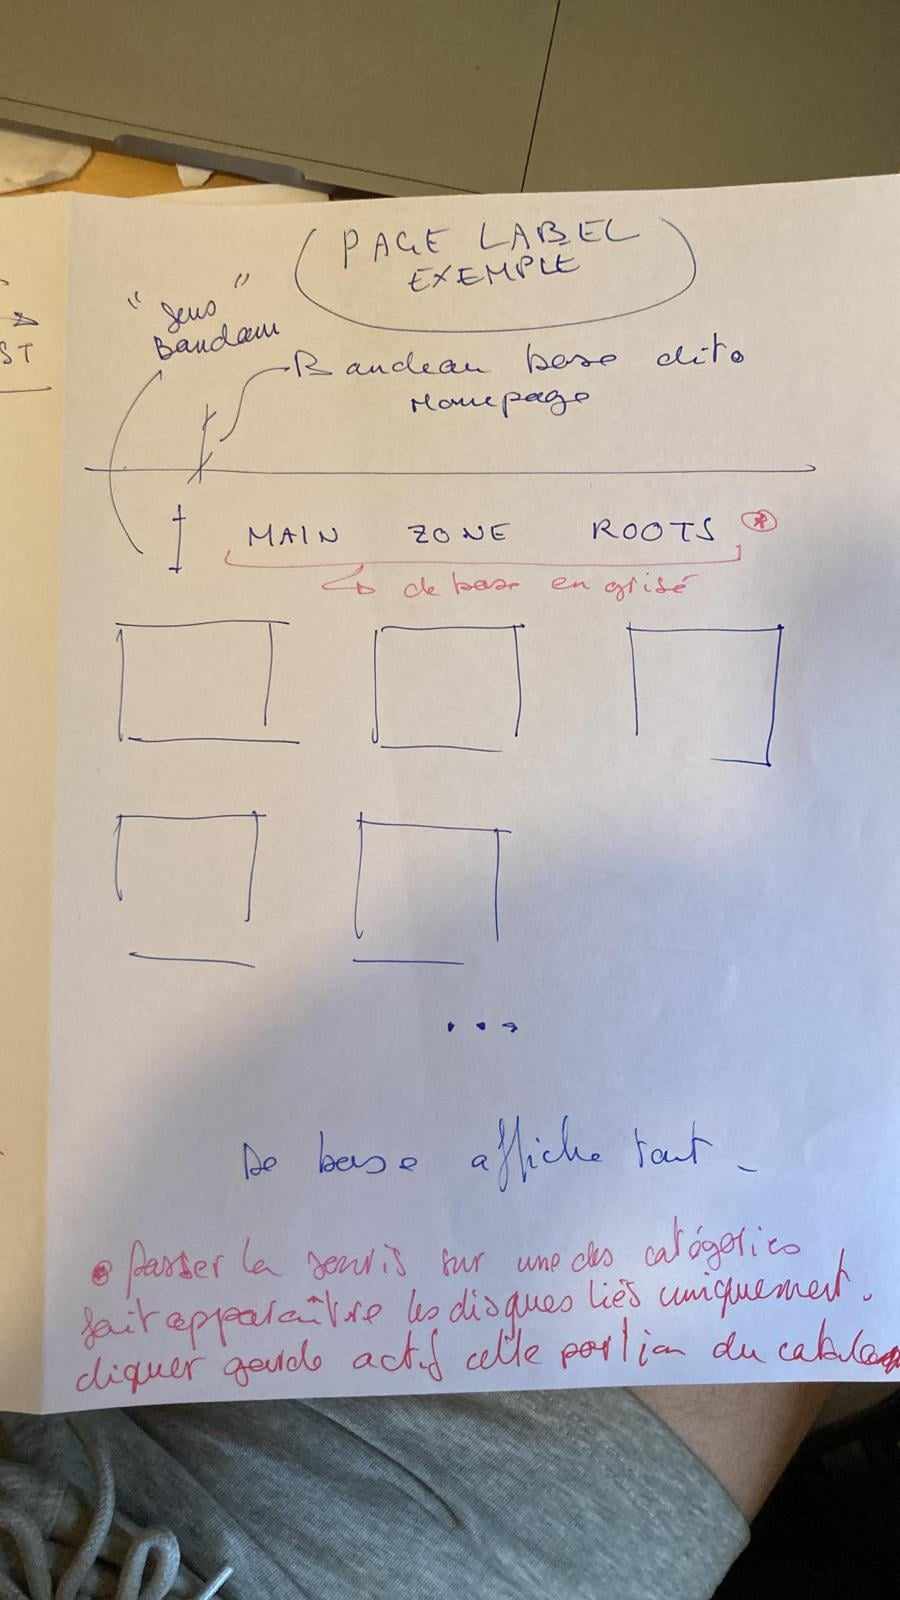 ST
PAGE LABEL
EXEMPLE
"Sous"
Bandeau
Bandeau base dito
Homepage
MAIN ZONE ROOTS *
de base en grisé
...
De base affiche tout
Passer la souris sur une des catégories
fait apparaître les disques liés uniquement.
cliquer garde actif cette portion du